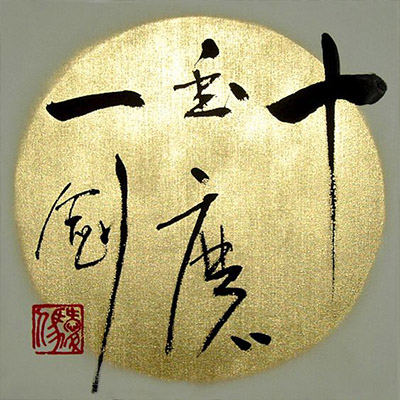 十
年磨
一劍